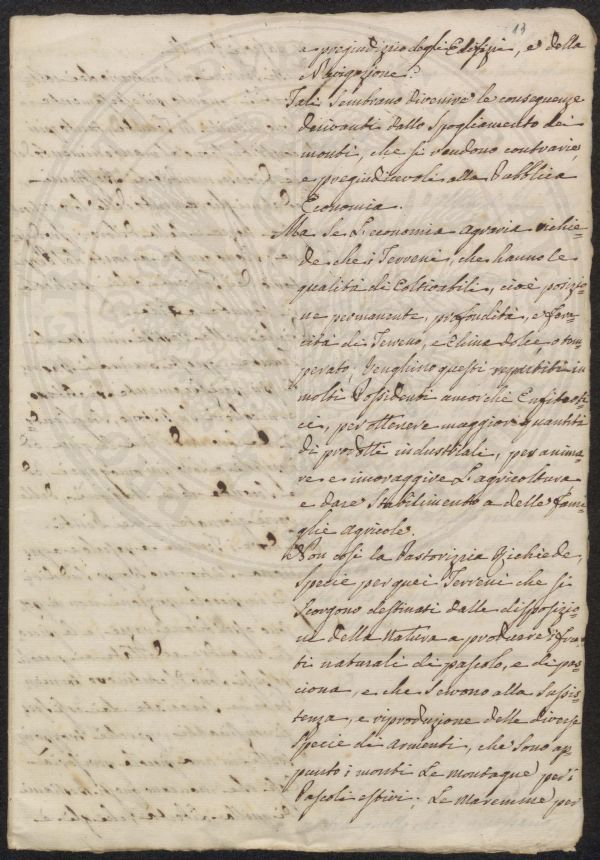 13
a pregiudizio degli Edifizi, e della
Navigazione.
Tali Sembrano divenire le conseguenze
derivanti dallo Spogliamento dei
monti, che si rendono contrarie,
e pregiudicevoli alla Pubblica
Economia.
Ma se L'economia Agraria richie=
de che i Terreni, che hanno le
qualità di Coltivabili, cioè posizio=
ne permanente, profondità, e fera=
cità di Terreno, e Clima dolce, o tem=
perato, Venghino questi repartiti in
molti Possidenti ancorchè Enfiteoti=
ci, per ottenere maggior quantità
di prodotti industriali, per anima=
re e incoraggire L'agricoltura
e dare Stabilimento a delle fami=
glie agricole.
Non così la Pastorizia Richiede,
Specie per quei Terreni che si
Scorgono destinati dalle disposizio=
ni della Natura a produrre i frut=
ti naturali di pascolo, e di pas=
ciona, e che servono alla Sussis=
tenza, e riproduzione delle diverse
Specie di Armenti, che sono ap=
punto i monti Le montagne per i
Pascoli estivi; Le Maremme per